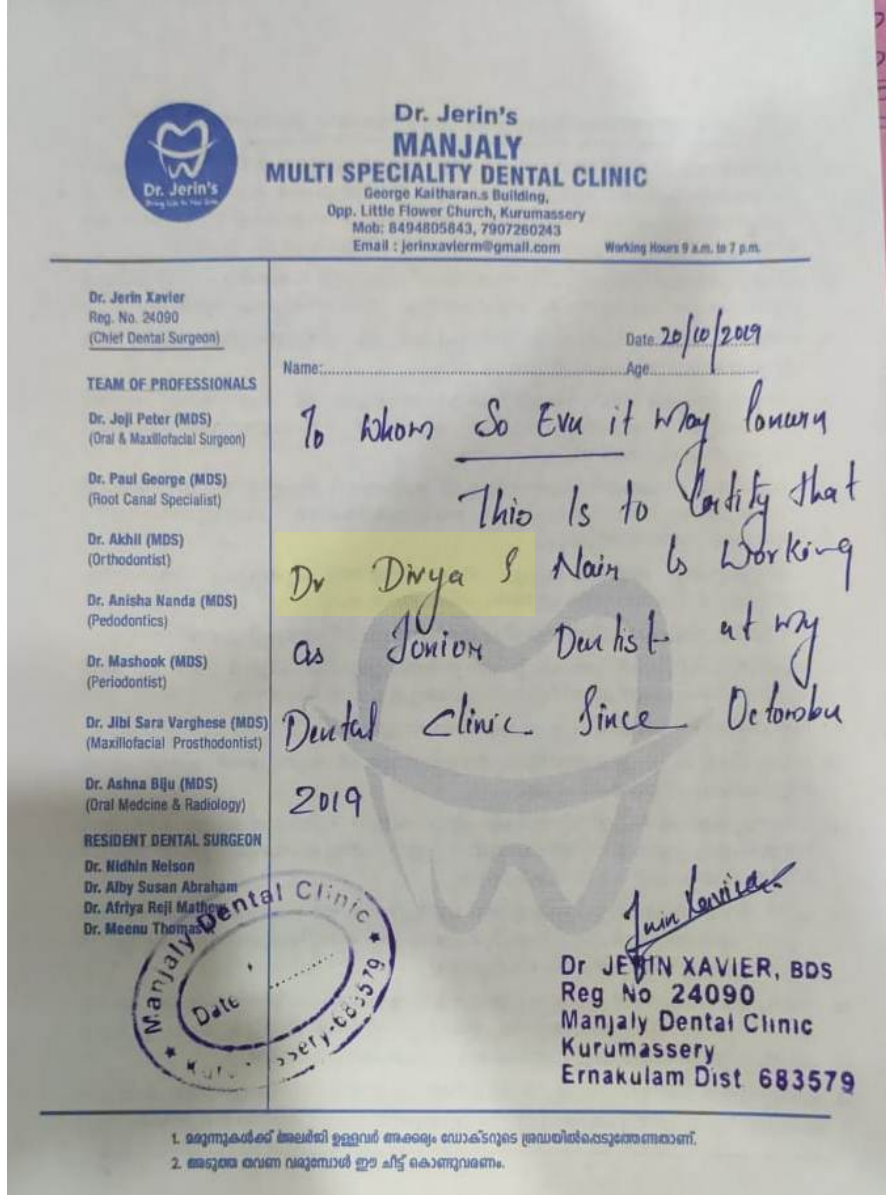 Dr. Jerin's
MANJALY
MULTI SPECIALITY DENTAL CLINIC
George Kaitharan.s Building,
Opp. Little Flower Church, Kurumassery
Mob: 8494805843, 7907260243
Email : jerinxavierm@gmail.com
Working Hours 9 a.m. to 7 p.m.
Dr. Jerin's
Dr. Jerin Xavier
Reg. No. 24090
(Chief Dental Surgeon)
TEAM OF PROFESSIONALS
Dr. Joji Peter (MDS)
(Oral & Maxillofacial Surgeon)
Dr. Paul George (MDS)
(Root Canal Specialist)
Dr. Akhil (MDS)
(Orthodontist)
Dr. Anisha Nanda (MDS)
(Pedodontics)
Dr. Mashook (MDS)
(Periodontist)
Dr. Jibi Sara Varghese (MDS)
(Maxillofacial Prosthodontist)
Dr. Ashna Biju (MDS)
(Oral Medcine & Radiology)
RESIDENT DENTAL SURGEON
Dr. Nidhin Nelson
Dr. Alby Susan Abraham
Dr. Afriya Reji Mathew
Dr. Meenu Thomas
Date 20/10/2019
Name: Age
To Whom So Ever it May Concern
This Is to Certify that
Dr Divya S Nair Is Working
as Junior Dentist at my
Dental Clinic Since Octorober
2019
Jerin Xavier
Dr JERIN XAVIER, BDS
Reg No 24090
Manjaly Dental Clinic
Kurumassery
Ernakulam Dist 683579
Manjaly Dental Clinic
Date
683579
1. മരുന്നുകൾക്ക് അലർജി ഉള്ളവർ അക്കാര്യം ഡോക്ടറുടെ ശ്രദ്ധയിൽപ്പെടുത്തേണ്ടതാണ്.
2. അടുത്ത തവണ വരുമ്പോൾ ഈ ചീട്ട് കൊണ്ടുവരണം.